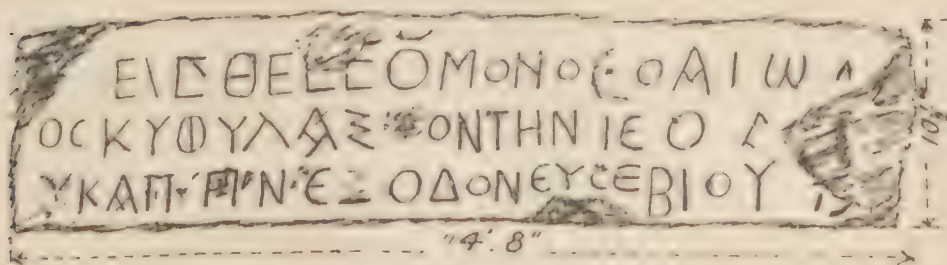 ΕΙΣΘΕΕΣΟΜΟΝΟΣΟΑΙω
ΟϹΚΥΦΥΛΑΞΟΝΤΗΝΙΕΟ
ΥΚΑΠ ΝΕΞΟΔΟΝΕΥϹΕΒΙΟΥ
"4'. 8"
10½"